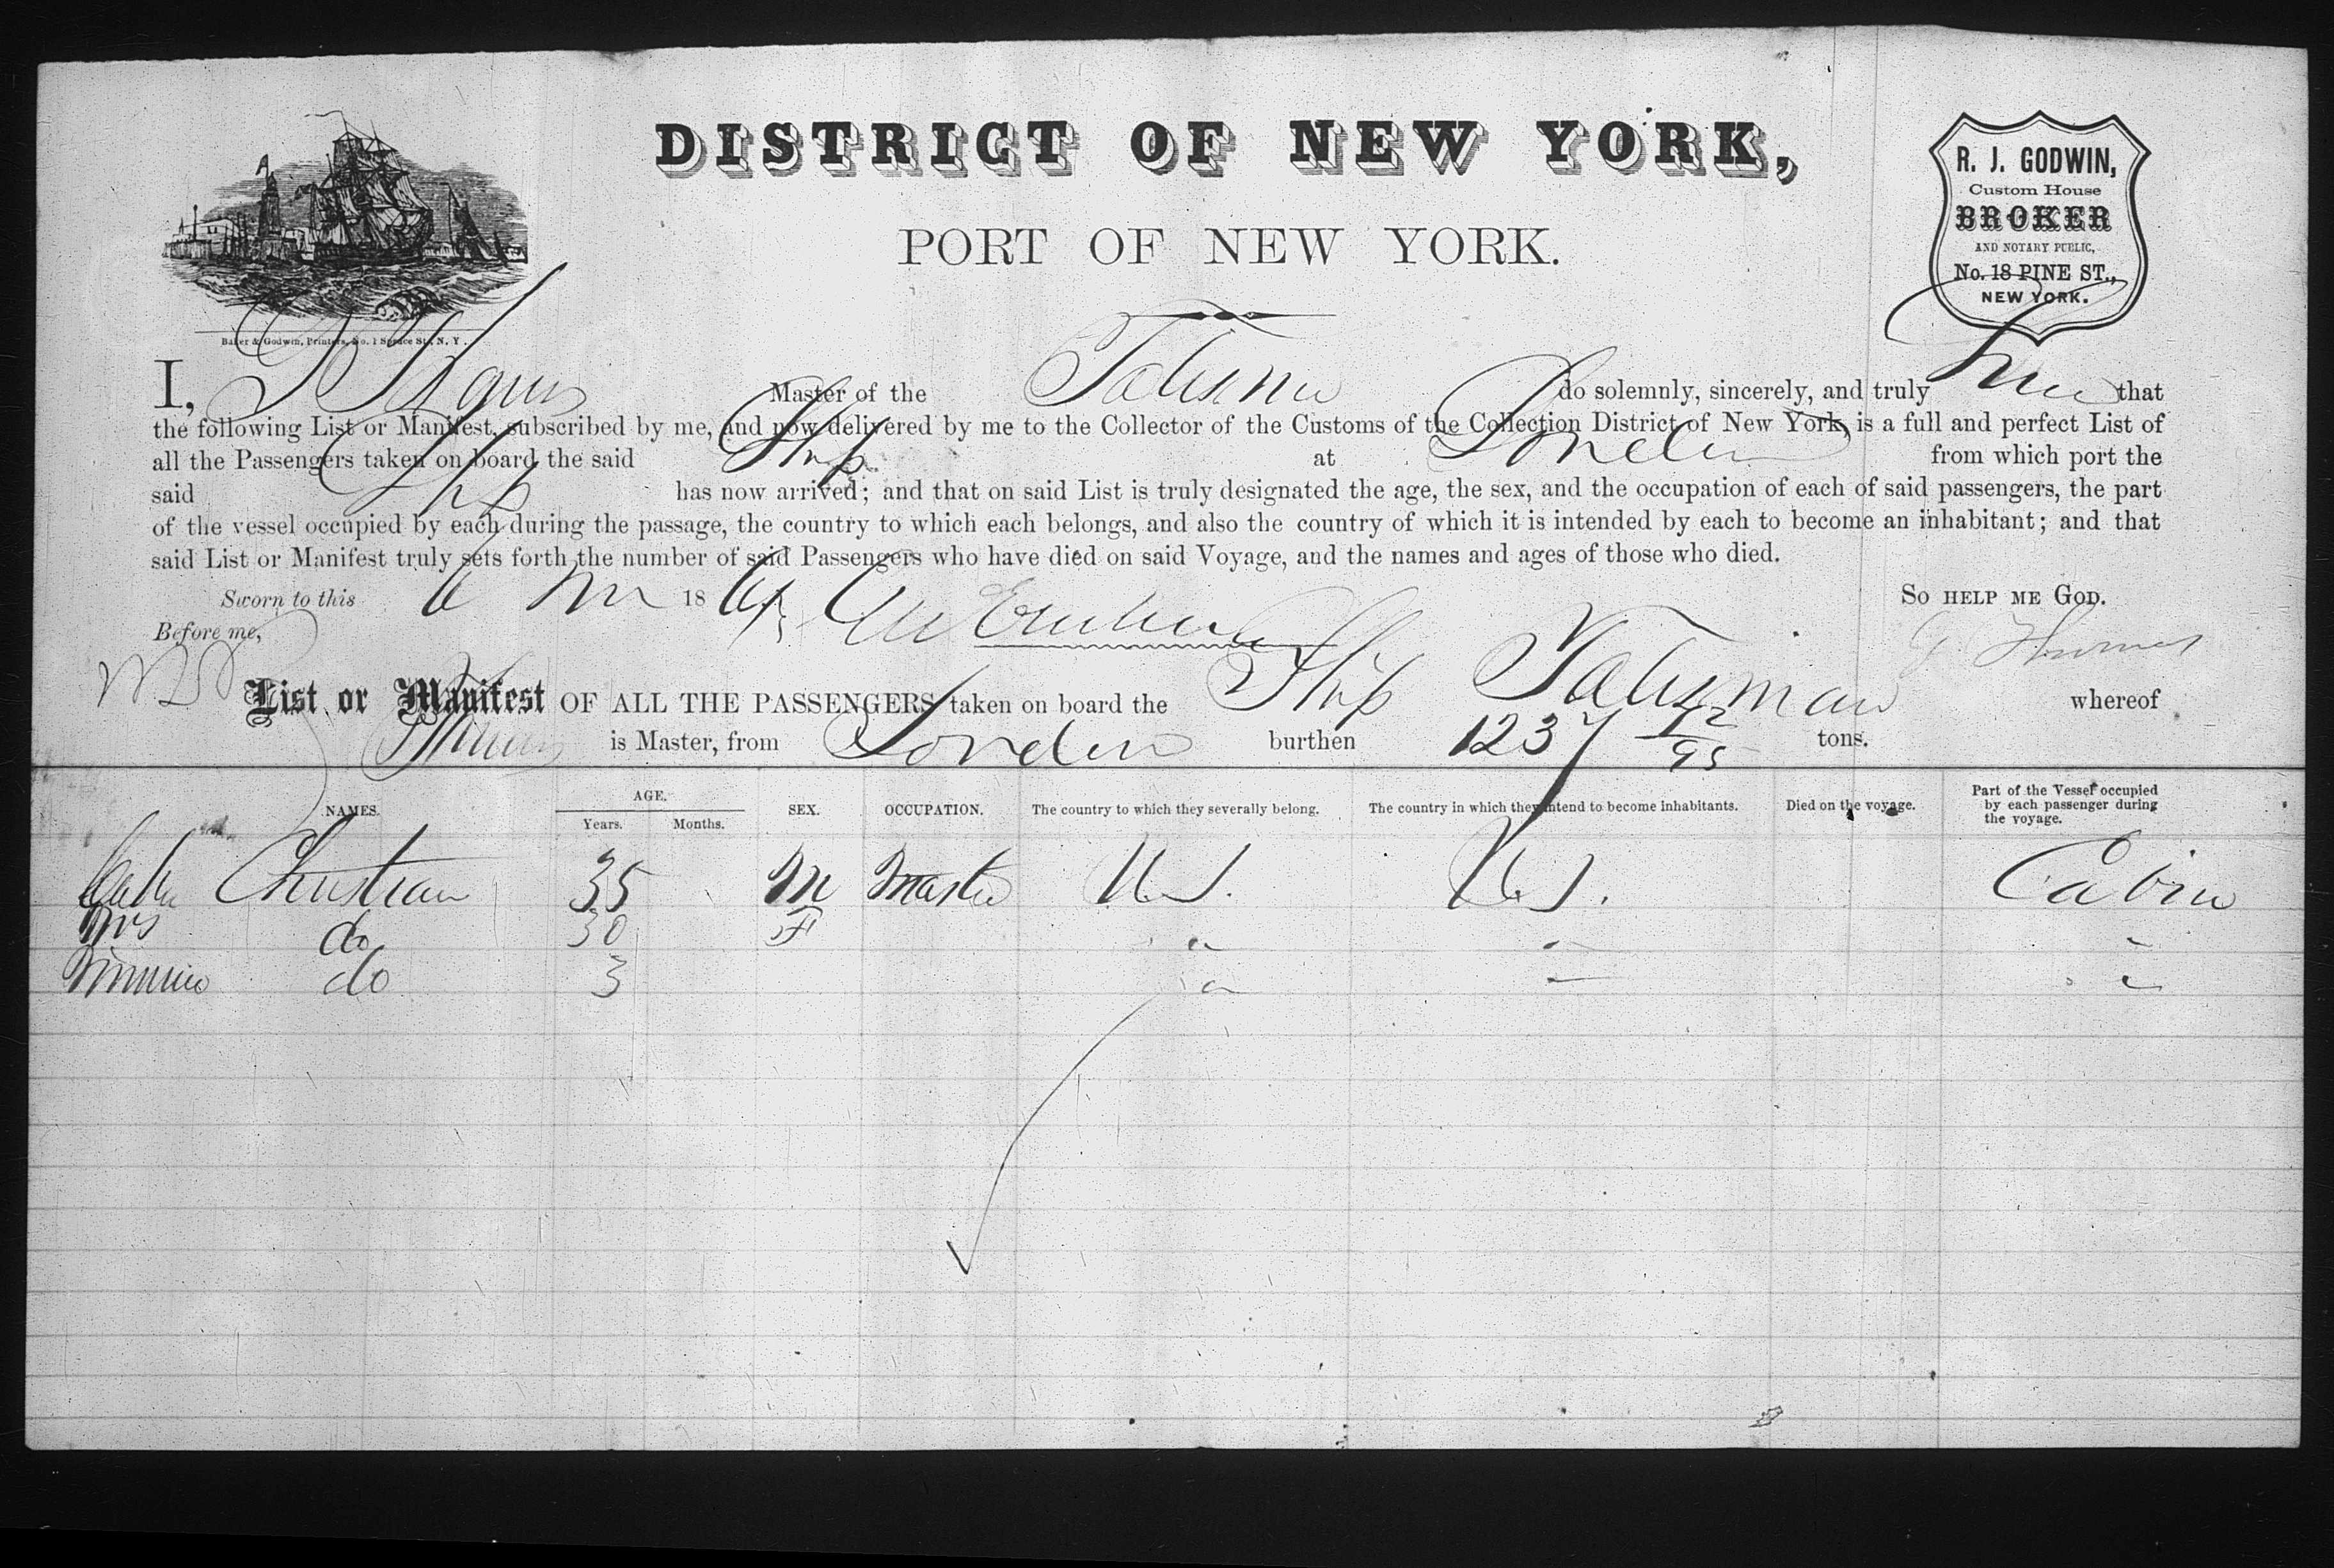 DISTRICT OF NEW YORK,
PORT OF NEW YORK.
R. J. GODWIN,
Custom House
BROKER
AND NOTARY PUBLIC,
No. 18 PINE ST.,
NEW YORK.
Baker & Godwin, Printers, No. 1 Spruce St., N. Y.
I, Master of the do solemnly, sincerely, and truly that
the following List or Manifest, subscribed by me, and now delivered by me to the Collector of the Customs of the Collection District of New York, is a full and perfect List of
all the Passengers taken on board the said Ship at London from which port the
said Ship has now arrived; and that on said List is truly designated the age, the sex, and the occupation of each of said passengers, the part
of the vessel occupied by each during the passage, the country to which each belongs, and also the country of which it is intended by each to become an inhabitant; and that
said List or Manifest truly sets forth the number of said Passengers who have died on said Voyage, and the names and ages of those who died.
Sworn to this 6 18 So help me God.
Before me,
List or Manifest OF ALL THE PASSENGERS taken on board the Ship Talisman whereof
is Master, from London burthen 1237 12/95 tons.
NAMES. AGE. SEX. OCCUPATION. The country to which they severally belong. The country in which they intend to become inhabitants. Died on the voyage. Part of the Vessel occupied by each passenger during the voyage.
Years. Months.
Christian 35 M Master U.S. U.S. Cabin
Mrs do 30 F
do 3